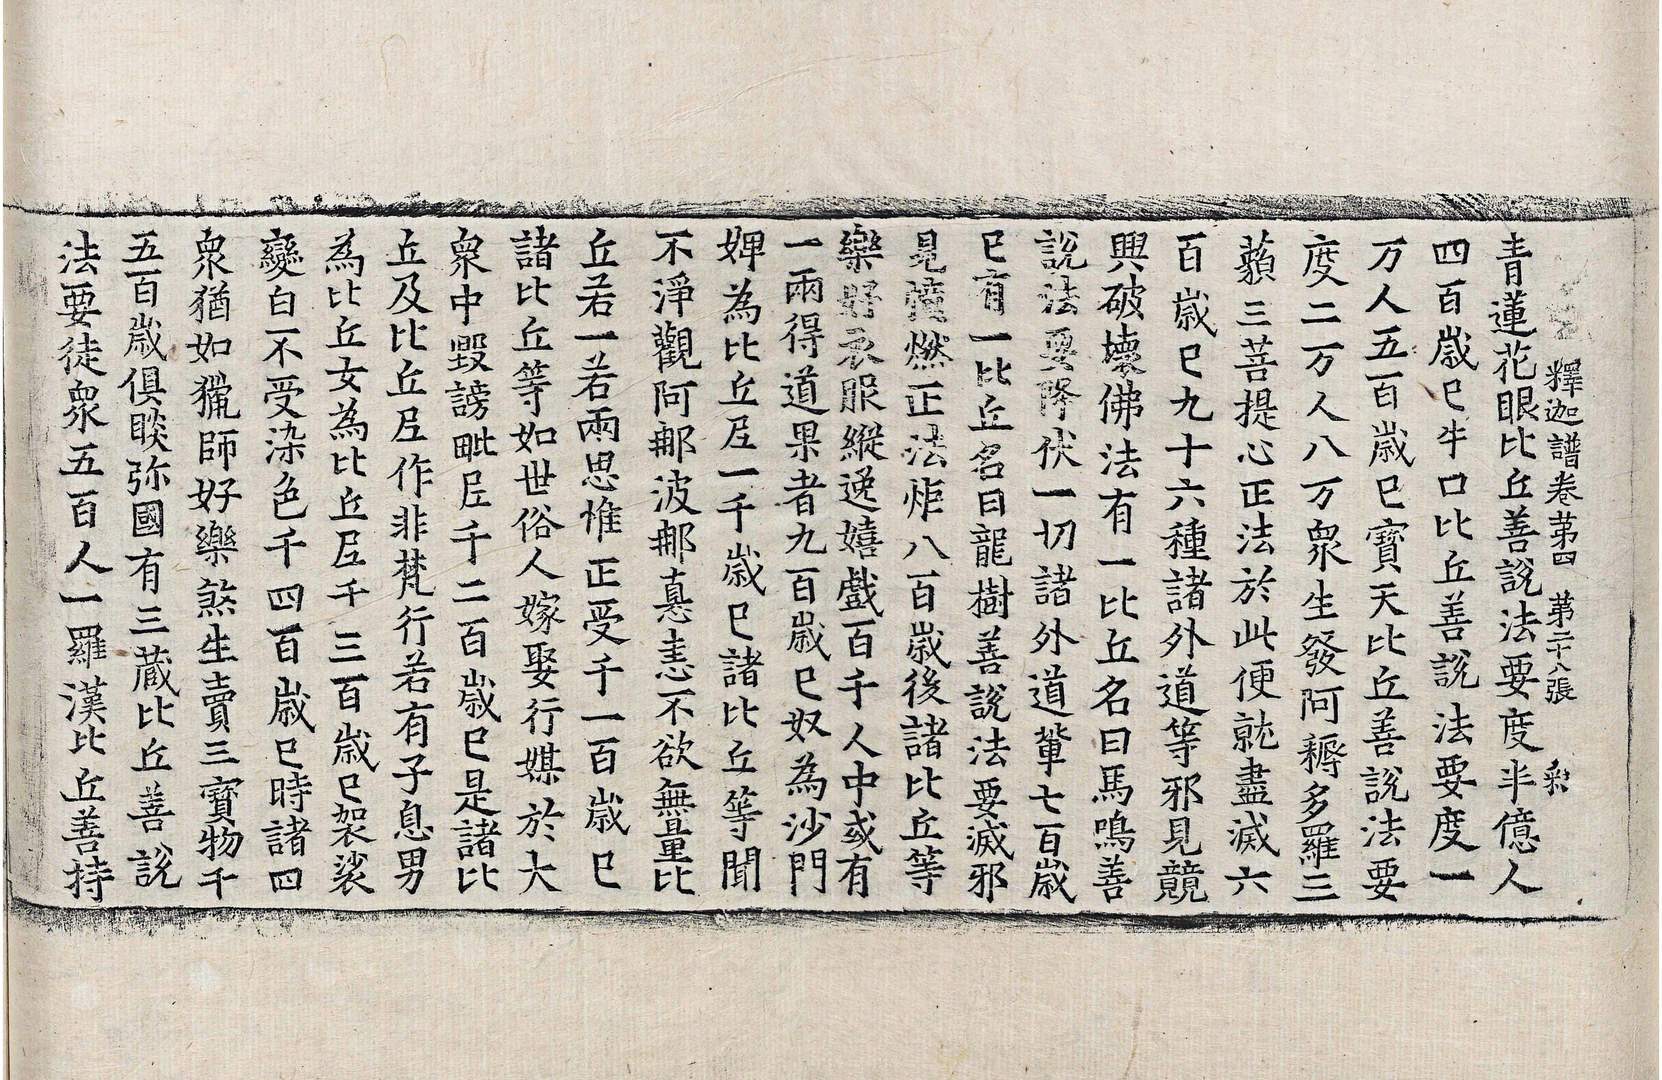 釋迦譜卷第四 第二十八張
青蓮花眼比丘善說法要度半億人
四百歲已牛口比丘善說法要度一
万人五百歲已寶天比丘善說法要
度二万人八万衆生發阿耨多羅三
藐三菩提心正法於此便就盡滅六
百歲已九十六種諸外道等邪見競
興破壞佛法有一比丘名曰馬鳴善
說法要降伏一切諸外道輩七百歲
已有一比丘名曰龍樹善說法要滅邪
見幢燃正法炬八百歲後諸比丘等
樂好衣服縱逸嬉戲百千人中或有
一兩得道果者九百歲已奴為沙門
婢為比丘尼一千歲已諸比丘等聞
不淨觀阿那波那恚不欲無量比
丘若一若兩思惟正受千一百歲已
諸比丘等如世俗人嫁娶行媒於大
衆中毀謗毗尼千二百歲已是諸比
丘及比丘尼作非梵行若有子息男
為比丘女為比丘尼千三百歲已袈裟
變白不受染色千四百歲已時諸四
衆猶如獵師好樂煞生賣三寶物千
五百歲俱睒弥國有三藏比丘善說
法要徒衆五百人一羅漢比丘善持